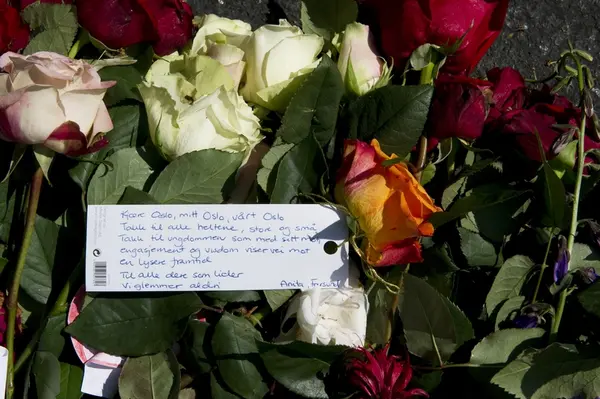 Kjære Oslo, mitt Oslo, vårt Oslo
Takk til alle heltene, stor og små
Takk til ungdommen som med sitt mot,
engasjement og visdom viser vei mot
en lysere framtid
Til alle dere som lider
Vi glemmer aldri Anita,